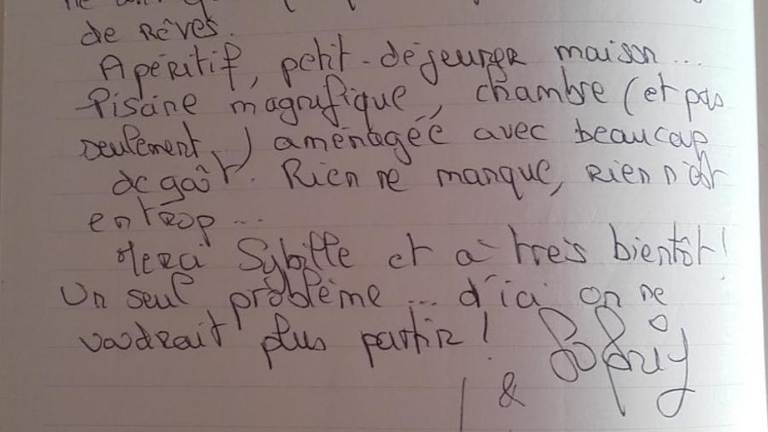 de Rêves.
Apéritif, petit-déjeuner maison...
Piscine magnifique, chambre (et pas
seulement) aménagée avec beaucoup
de goût. Rien ne manque, Rien n'est
en trop...
Merci Sybille et à très bientôt!
Un seul problème... d'ici on ne
voudrait plus partir!
&